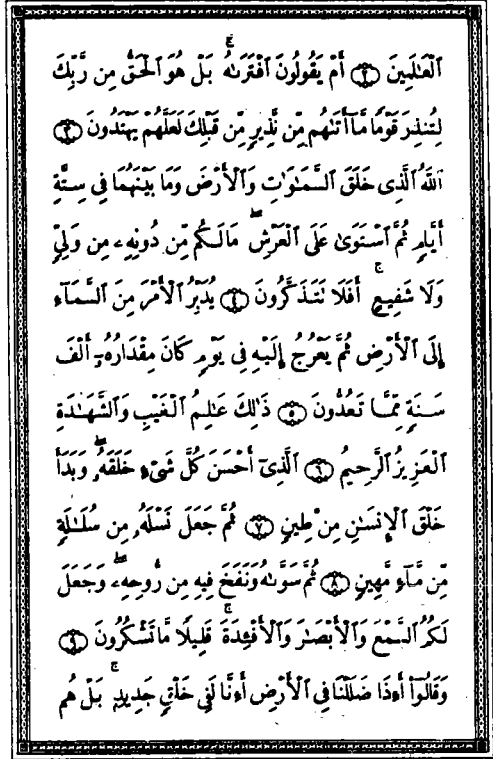 ٱلْعَٰلَمِينَ ٢ أَمْ يَقُولُونَ ٱفْتَرَىٰهُ ۚ بَلْ هُوَ ٱلْحَقُّ مِن رَّبِّكَ
لِتُنذِرَ قَوْمًا مَّآ أَتَىٰهُم مِّن نَّذِيرٍ مِّن قَبْلِكَ لَعَلَّهُمْ يَهْتَدُونَ ٣
ٱللَّهُ ٱلَّذِى خَلَقَ ٱلسَّمَٰوَٰتِ وَٱلْأَرْضَ وَمَا بَيْنَهُمَا فِى سِتَّةِ
أَيَّامٍ ثُمَّ ٱسْتَوَىٰ عَلَى ٱلْعَرْشِ ۖ مَا لَكُم مِّن دُونِهِۦ مِن وَلِىٍّ
وَلَا شَفِيعٍ ۚ أَفَلَا تَتَذَكَّرُونَ ٤ يُدَبِّرُ ٱلْأَمْرَ مِنَ ٱلسَّمَآءِ
إِلَى ٱلْأَرْضِ ثُمَّ يَعْرُجُ إِلَيْهِ فِى يَوْمٍ كَانَ مِقْدَارُهُۥٓ أَلْفَ
سَنَةٍ مِّمَّا تَعُدُّونَ ٥ ذَٰلِكَ عَٰلِمُ ٱلْغَيْبِ وَٱلشَّهَٰدَةِ
ٱلْعَزِيزُ ٱلرَّحِيمُ ٦ ٱلَّذِىٓ أَحْسَنَ كُلَّ شَىْءٍ خَلَقَهُۥ ۖ وَبَدَأَ
خَلْقَ ٱلْإِنسَٰنِ مِن طِينٍ ٧ ثُمَّ جَعَلَ نَسْلَهُۥ مِن سُلَٰلَةٍ
مِّن مَّآءٍ مَّهِينٍ ٨ ثُمَّ سَوَّىٰهُ وَنَفَخَ فِيهِ مِن رُّوحِهِۦ ۖ وَجَعَلَ
لَكُمُ ٱلسَّمْعَ وَٱلْأَبْصَٰرَ وَٱلْأَفْـِٔدَةَ ۚ قَلِيلًا مَّا تَشْكُرُونَ ٩
وَقَالُوٓا۟ أَءِذَا ضَلَلْنَا فِى ٱلْأَرْضِ أَءِنَّا لَفِى خَلْقٍ جَدِيدٍۭ ۚ بَلْ هُم